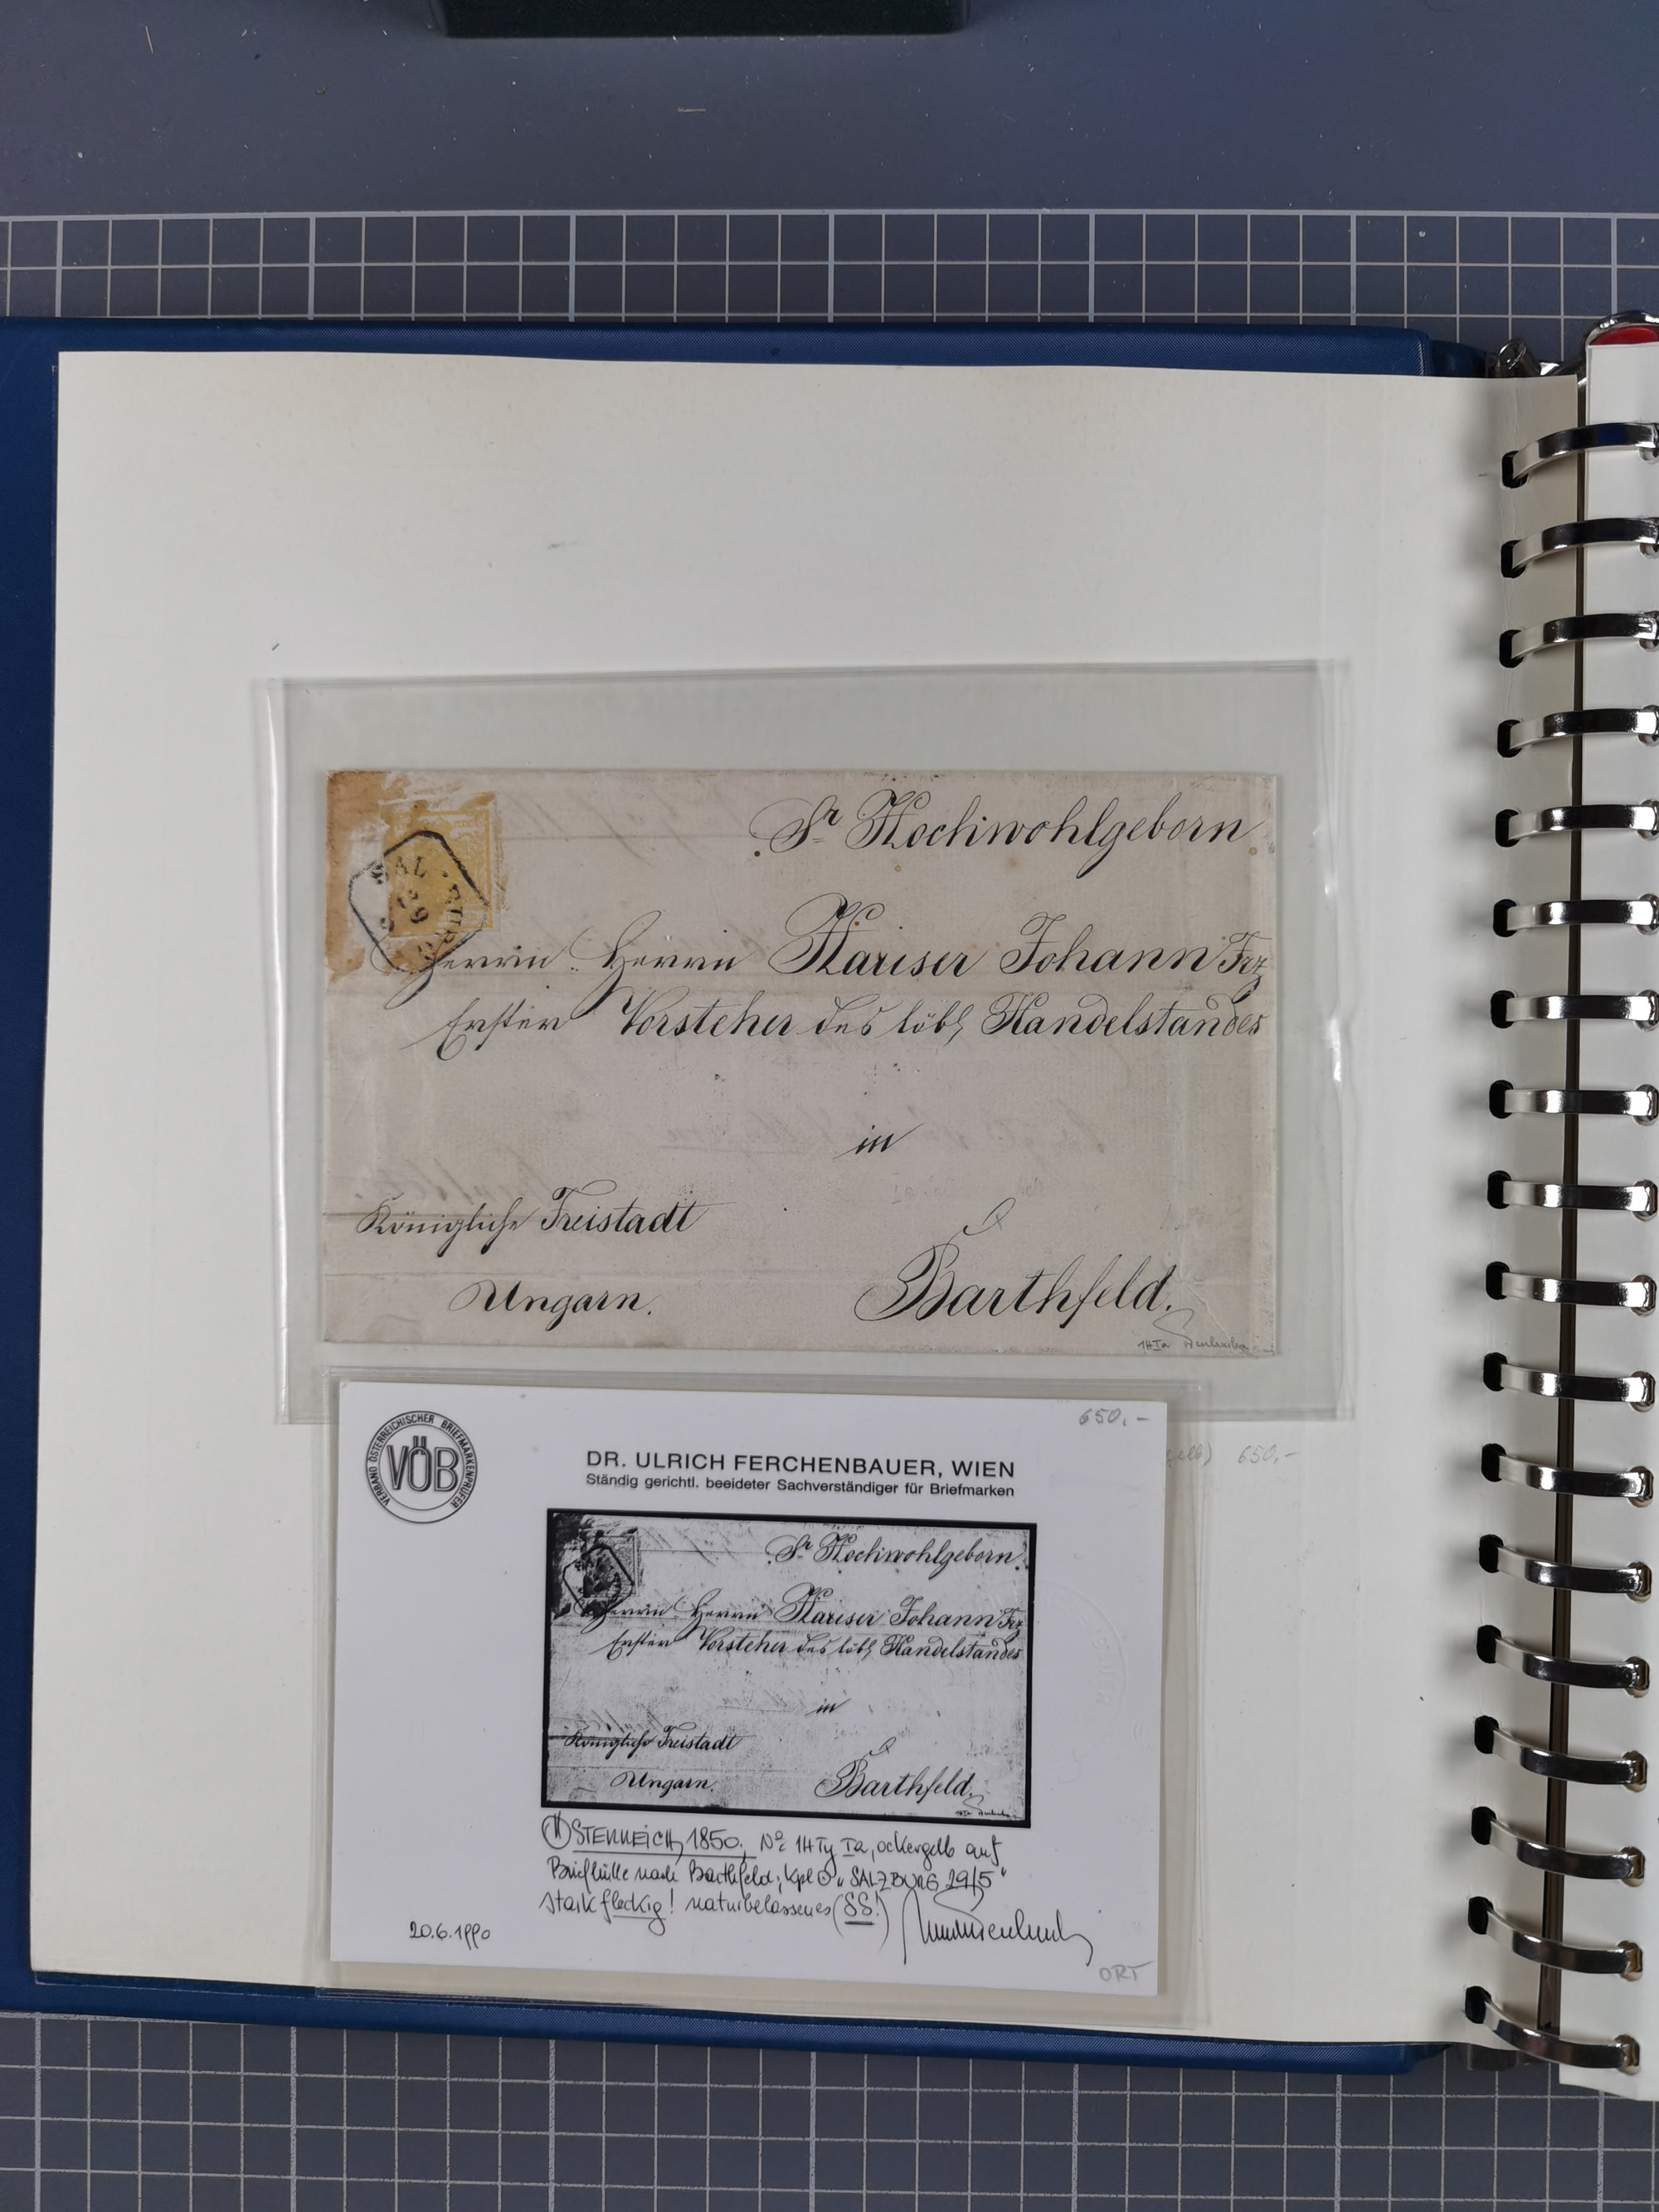 Sr Hochwohlgeborn
SALZBURG
29
5
Herrn Herrn Kariser Johann Frz
Ersten Vorsteher des löbl Handelstandes
in
Königliche Freistadt
Ungarn.
Barthfeld.
1HIa
650,-
650,-
VERBAND ÖSTERREICHISCHER BRIEFMARKENPRÜFER
VÖB
DR. ULRICH FERCHENBAUER, WIEN
Ständig gerichtl. beeideter Sachverständiger für Briefmarken
Sr Hochwohlgeborn
Herrn Herrn Kariser Johann Frz
Ersten Vorsteher des löbl Handelstandes
in
Königliche Freistadt
Ungarn.
Barthfeld.
ÖSTERREICH, 1850, No 1HTy Ia, ockergelb auf
Briefhülle nach Barthfeld; kpl "SALZBURG 29/5"
stark fleckig! naturbelassenes (SS!)
20.6.1990
ORT